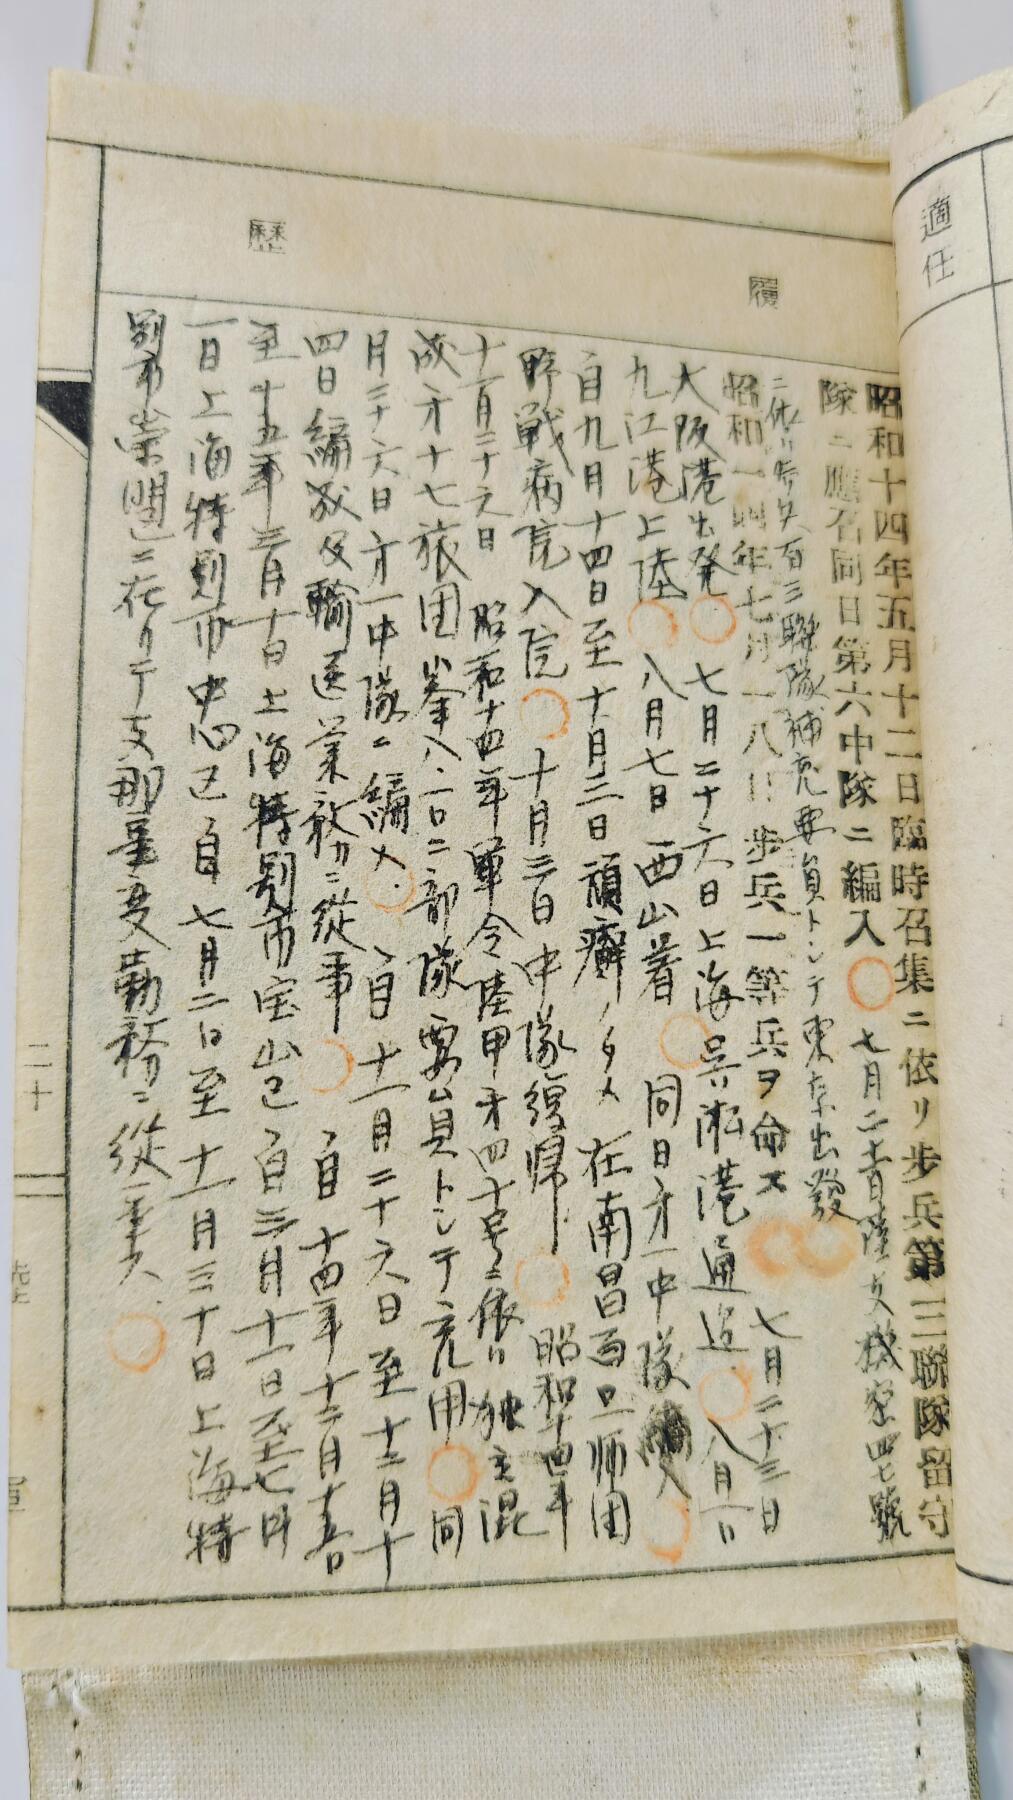 適任
履歴
昭和十四年五月十二日臨時召集ニ依リ步兵第三聯隊留守
隊ニ應召同日第六中隊ニ編入 七月二十一日陸支機密四七號
ニ依リ步兵百三聯隊補充要員トシテ東京出發
昭和一四年七月一八日 步兵一等兵ヲ命ス 七月二十三日
大阪港出発 七月二十六日上海呉淞港通過 八月一日
九江港上陸 八月七日西山着 同日才一中隊編入
自九月十四日至十月三日頑癬ノタメ在南昌 師団
野戦病院入院 十月三日中隊復帰 昭和十四年
十一月二十六日 昭和十四年軍令陸甲才四十号ニ依リ独立混
成才十七旅団 峯八一〇二部隊要員トシテ充用 同
月二十六日才一中隊ニ編入 自十一月二十六日至十二月十
四日編成及輸送業務ニ従事 自十四年十二月十五日
至十五年三月十日上海特別市宝山已自三月十一日至七月
一日上海特別市中心已自七月二日至十一月三十日上海特
別市崇明ニ在リテ支那事変勤務ニ従事ス
二十